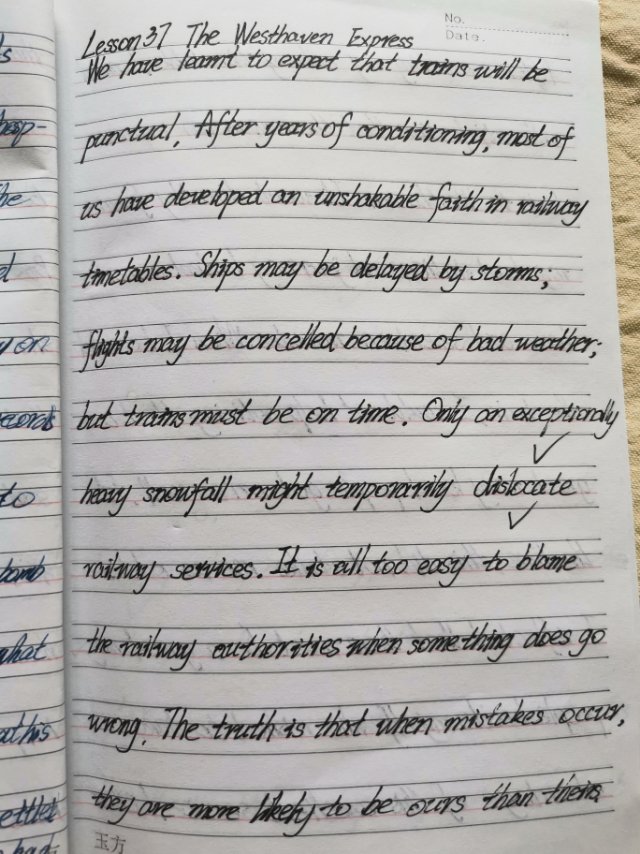 No.
Date.
Lesson 37 The Westhaven Express
We have learnt to expect that trains will be
punctual. After years of conditioning, most of
us have developed an unshakable faith in railway
timetables. Ships may be delayed by storms;
flights may be concelled because of bad weather;
but trains must be on time. Only an exceptionally
heavy snowfall might temporarily dislocate
railway services. It is all too easy to blame
the railway authorities when something does go
wrong. The truth is that when mistakes occur,
they are more likely to be ours than theirs.
玉方
he
d
y on
ecords
to
bomb
what
at his
ettled
had